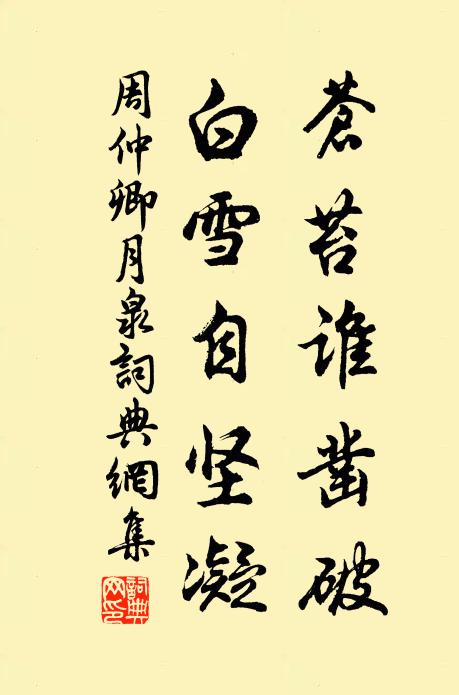 蒼苔谁凿破
白雪自坚凝
周仲卿月泉詞典網集
詞典網印